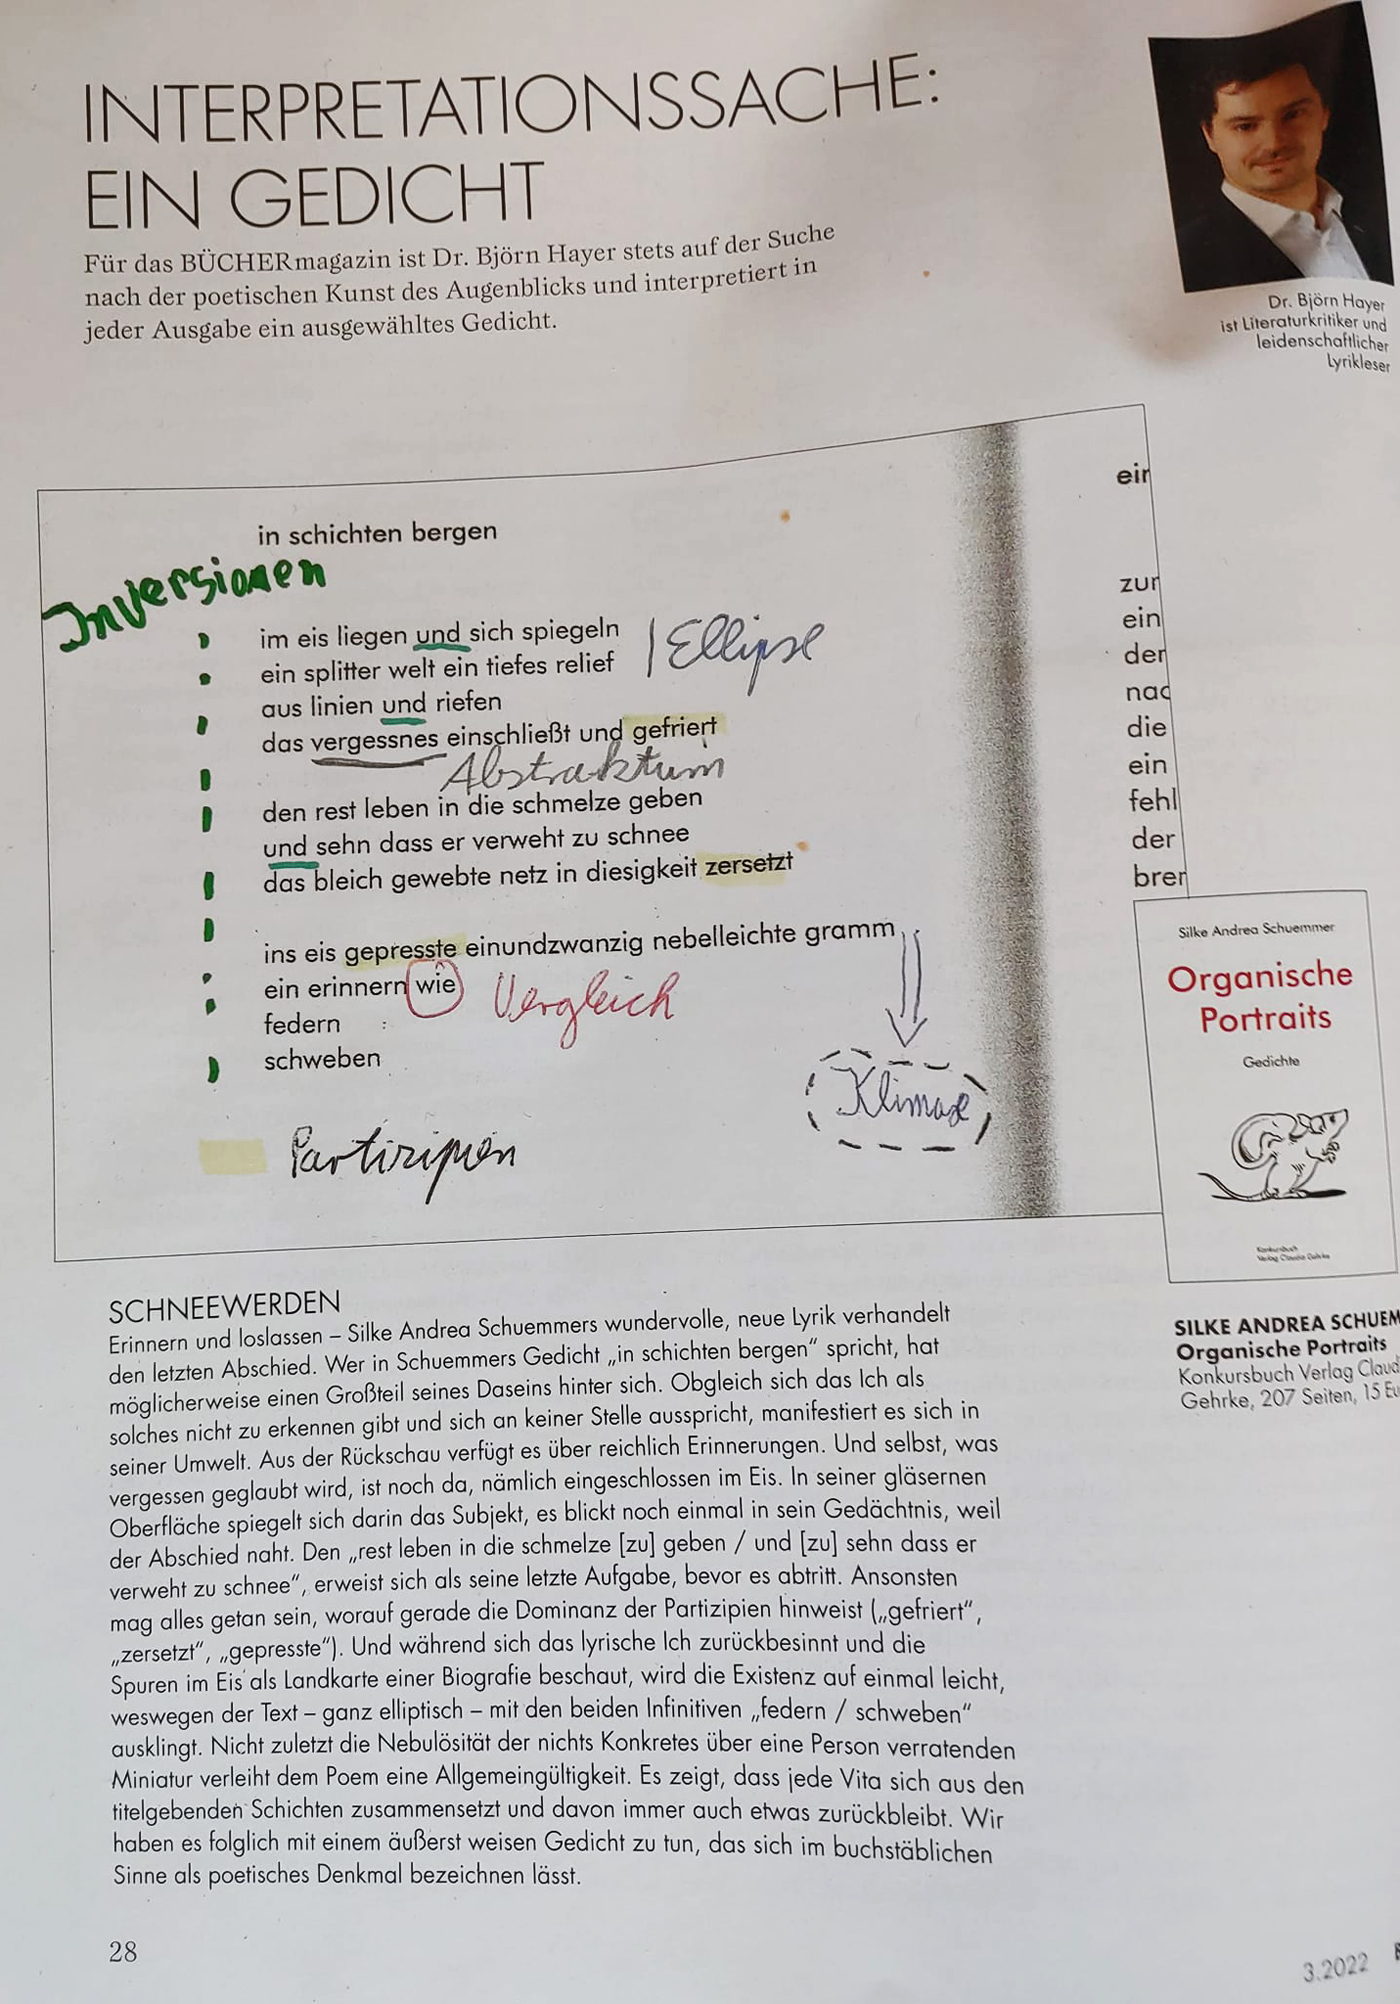 INTERPRETATIONSSACHE:
EIN GEDICHT
Für das BÜCHERmagazin ist Dr. Björn Hayer stets auf der Suche
nach der poetischen Kunst des Augenblicks und interpretiert in
jeder Ausgabe ein ausgewähltes Gedicht.
Dr. Björn Hayer
ist Literaturkritiker und
leidenschaftlicher
Lyrikleser
in schichten bergen
Inversionen
im eis liegen und sich spiegeln
ein splitter welt ein tiefes relief
Ellipse
aus linien und riefen
das vergessnes einschließt und gefriert
Abstraktum
den rest leben in die schmelze geben
und sehn dass er verweht zu schnee
das bleich gewebte netz in diesigkeit zersetzt
ins eis gepresste einundzwanzig nebelleichte gramm
ein erinnern wie
Vergleich
federn
schweben
Klimax
Partizipien
ein
zur
ein
der
nac
die
ein
fehl
der
brer
Silke Andrea Schuemmer
Organische
Portraits
Gedichte
Konkursbuch
Verlag Claudia Gehrke
SILKE ANDREA SCHUEM
Organische Portraits
Konkursbuch Verlag Claud
Gehrke, 207 Seiten, 15 Eu
SCHNEEWERDEN
Erinnern und loslassen – Silke Andrea Schuemmers wundervolle, neue Lyrik verhandelt
den letzten Abschied. Wer in Schuemmers Gedicht „in schichten bergen“ spricht, hat
möglicherweise einen Großteil seines Daseins hinter sich. Obgleich sich das Ich als
solches nicht zu erkennen gibt und sich an keiner Stelle ausspricht, manifestiert es sich in
seiner Umwelt. Aus der Rückschau verfügt es über reichlich Erinnerungen. Und selbst, was
vergessen geglaubt wird, ist noch da, nämlich eingeschlossen im Eis. In seiner gläsernen
Oberfläche spiegelt sich darin das Subjekt, es blickt noch einmal in sein Gedächtnis, weil
der Abschied naht. Den „rest leben in die schmelze [zu] geben / und [zu] sehn dass er
verweht zu schnee“, erweist sich als seine letzte Aufgabe, bevor es abtritt. Ansonsten
mag alles getan sein, worauf gerade die Dominanz der Partizipien hinweist („gefriert“,
„zersetzt“, „gepresste“). Und während sich das lyrische Ich zurückbesinnt und die
Spuren im Eis als Landkarte einer Biografie beschaut, wird die Existenz auf einmal leicht,
weswegen der Text – ganz elliptisch – mit den beiden Infinitiven „federn / schweben“
ausklingt. Nicht zuletzt die Nebulösität der nichts Konkretes über eine Person verratenden
Miniatur verleiht dem Poem eine Allgemeingültigkeit. Es zeigt, dass jede Vita sich aus den
titelgebenden Schichten zusammensetzt und davon immer auch etwas zurückbleibt. Wir
haben es folglich mit einem äußerst weisen Gedicht zu tun, das sich im buchstäblichen
Sinne als poetisches Denkmal bezeichnen lässt.
28
3.2022